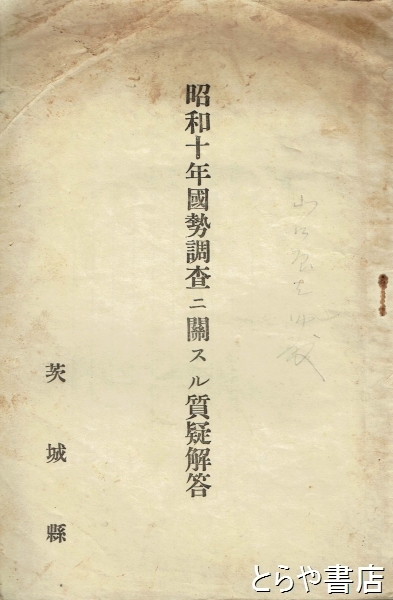 昭和十年國勢調査ニ關スル質疑解答
茨城縣
とらや書店